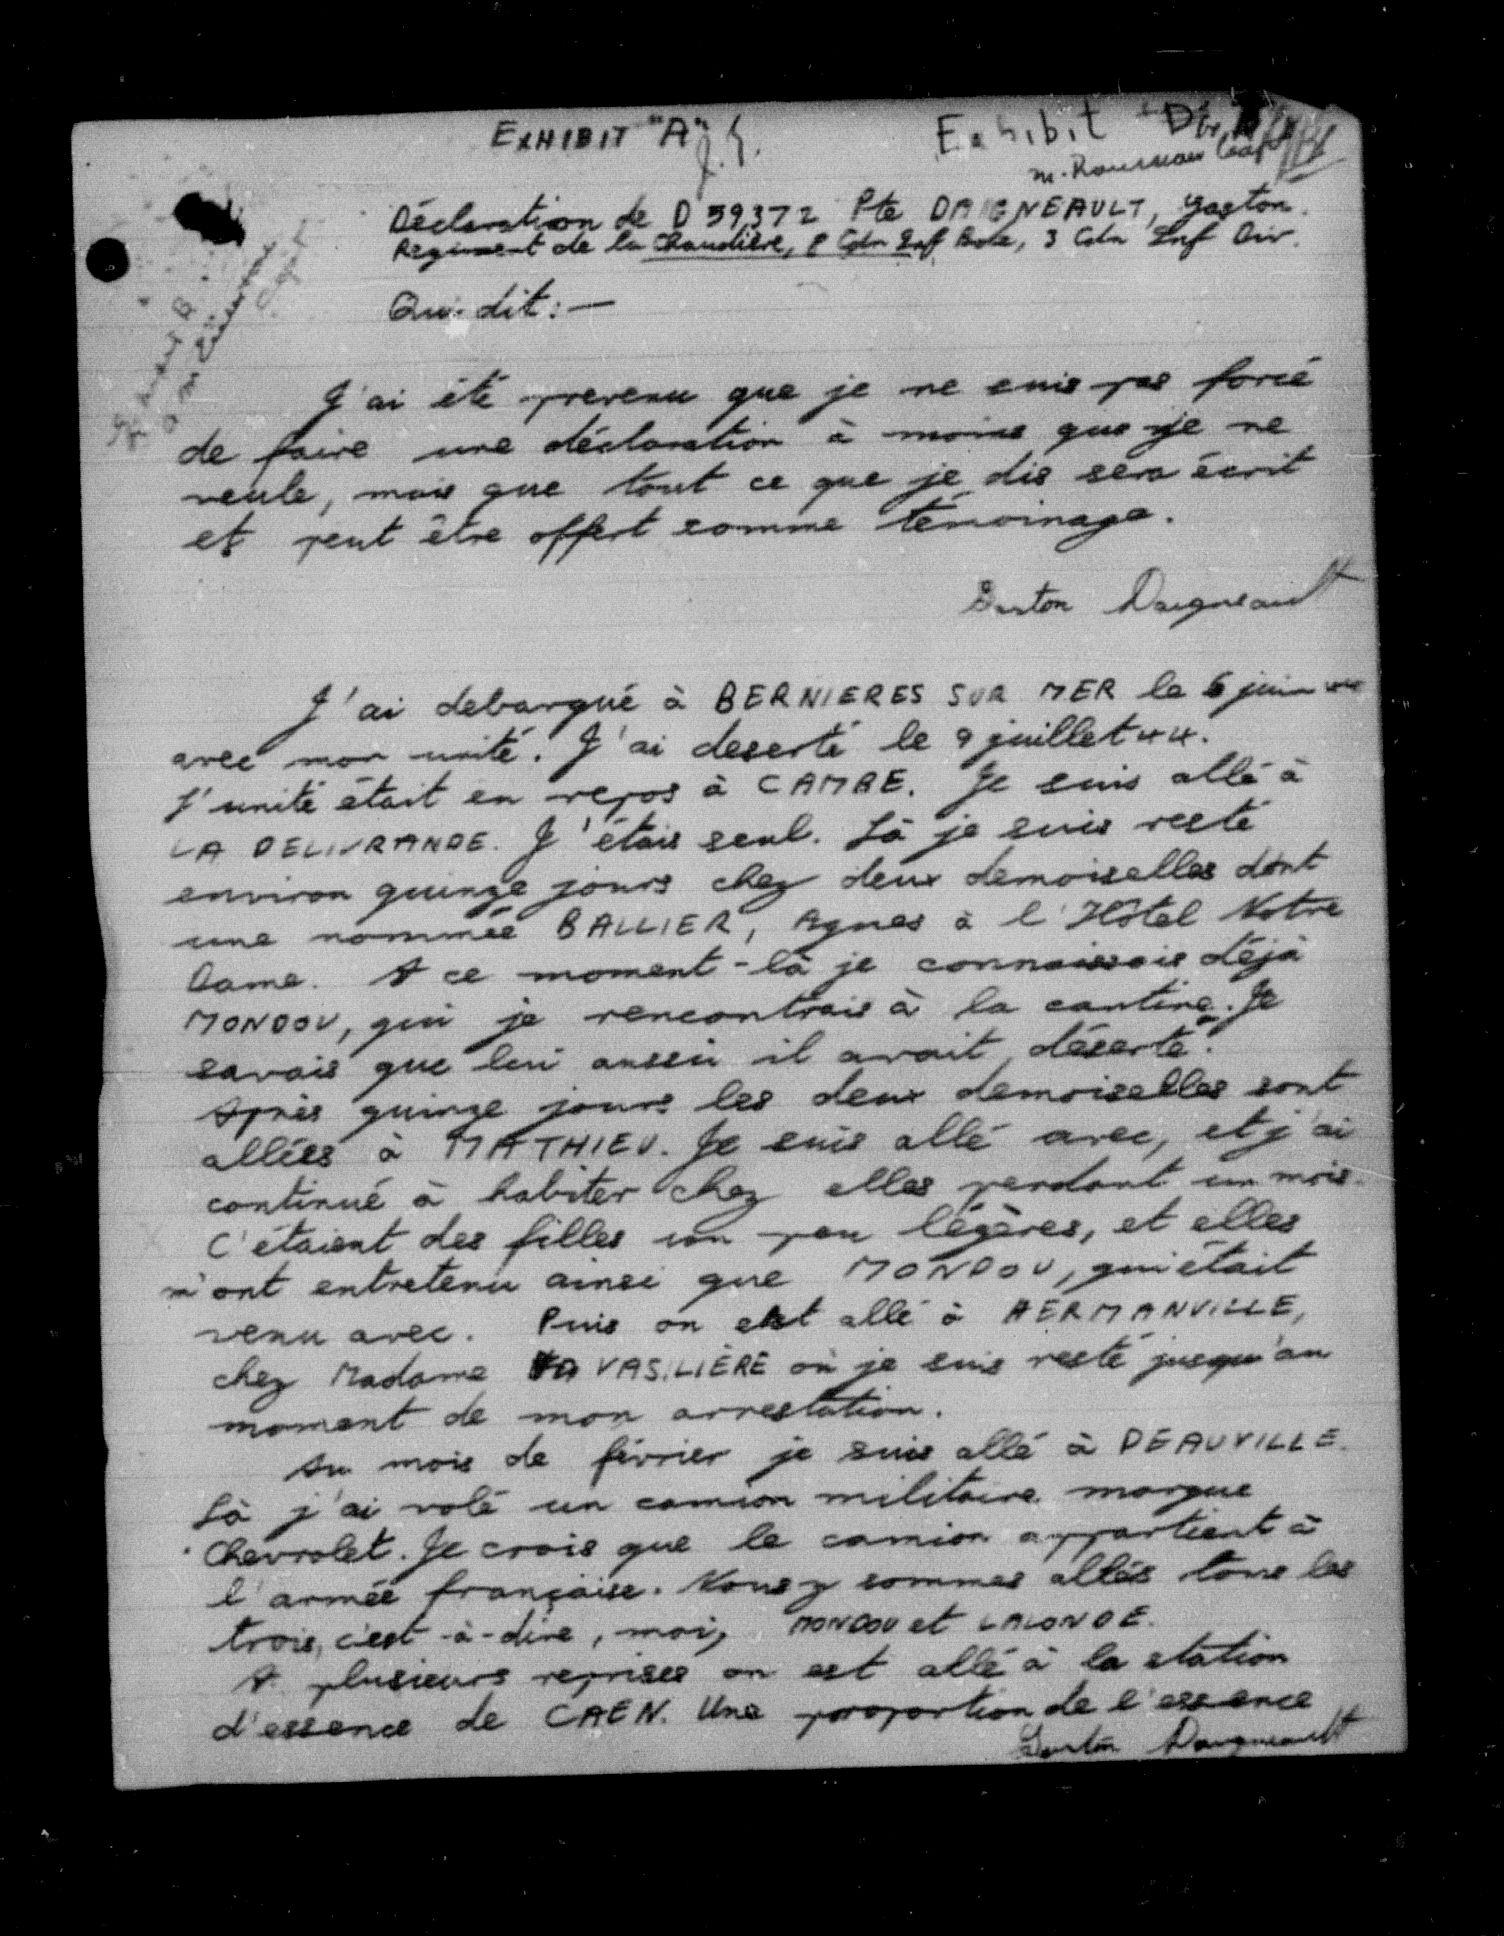 EXHIBIT "A" J.G.
Exhibit "D"
M. Rousseau Capt
Déclaration de D 59372 Pte DAIGNEAULT, Gaston.
Regiment de la Chaudière, 8 Cdn Inf Bde, 3 Cdn Inf Div.
Qui dit:—
J'ai été prevenu que je ne suis pas forcé
de faire une déclaration à moins que je ne
veule, mais que tout ce que je dis sera écrit
et peut être offert comme témoinage.
Gaston Daigneault
J'ai debarqué à BERNIERES SUR MER le 6 juin 44
avec mon unité. J'ai deserté le 9 juillet 44.
L'unité était en repos à CAMBE. Je suis allé à
LA DELIVRANDE. J'étais seul. Là je suis resté
environ quinze jours chez deux demoiselles dont
une nommée BALLIER, Agnes à l'Hôtel Notre
Dame. A ce moment-là je connaissais déjà
MONDOU, qui je rencontrais à la cantine. Je
savais que lui aussi il avait déserté.
Après quinze jours les deux demoiselles sont
allées à MATHIEU. Je suis allé avec, et j'ai
continué à habiter chez elles pendant un mois.
C'étaient des filles un peu légères, et elles
m'ont entretenu ainsi que MONDOU, qui était
venu avec. Puis on est allé à HERMANVILLE,
chez Madame LA VASILIÈRE où je suis resté jusqu'au
moment de mon arrestation.
Au mois de février je suis allé à DEAUVILLE.
Là j'ai volé un camion militaire marque
Chevrolet. Je crois que le camion appartient à
l'armée française. Nous y sommes allés tous les
trois, c'est-à-dire, moi, MONDOU et LALONDE.
A plusieurs reprises on est allé à la station
d'essence de CAEN. Une proportion de l'essence
Gaston Daigneault